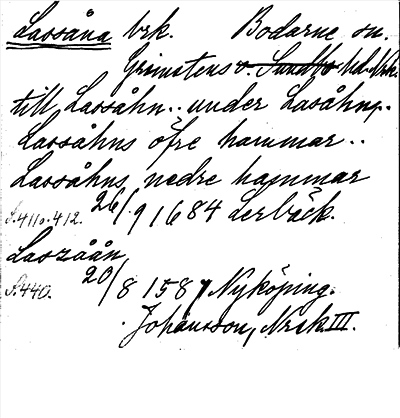 Lassåna brk. Bodarne sn.
Grimstens o. Sundbo hd. Nrk.
till Lassåhn.. under Lasåhn..
Lassåhns öfre hammar..
Lassåhns nedre hammar
S. 411 o. 412. 26/9 1684 Lerbäck.
Laszåån
S. 440. 20/8 1587 Nyköping.
Johansson, Nrsk. III.